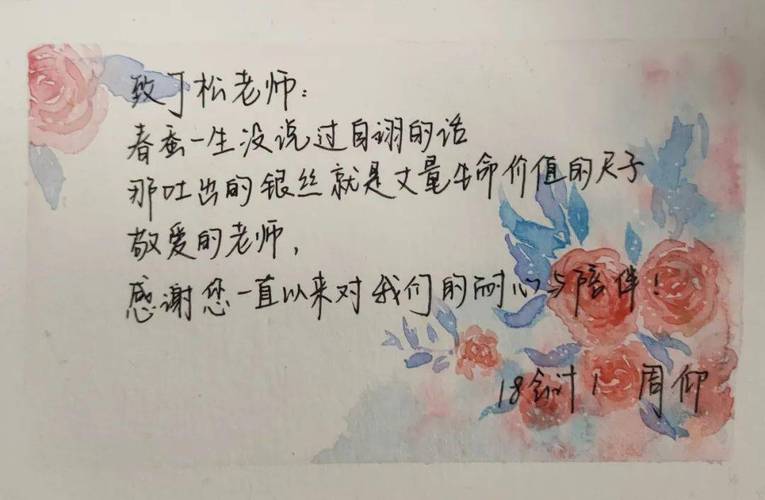 致丁松老师：
春蚕一生没说过自诩的话
那吐出的银丝就是丈量生命价值的尺子
敬爱的老师，
感谢您一直以来对我们的耐心与陪伴！
18会计1 周仰